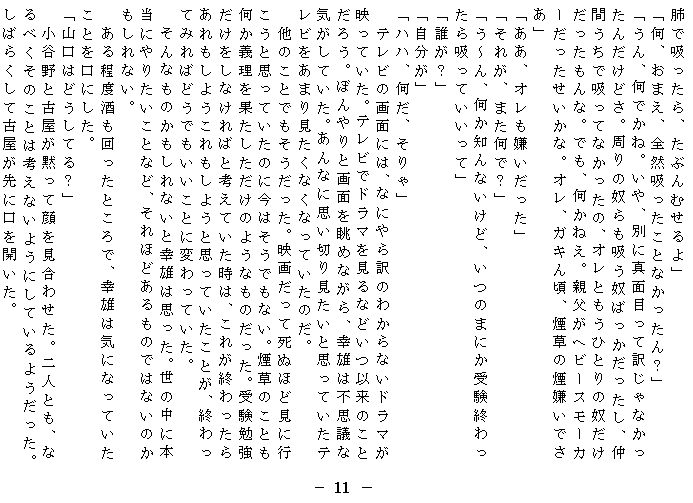 肺で吸ったら、たぶんむせるよ」
「何、おまえ、全然吸ったことなかったん？」
「うん、何でかね。いや、別に真面目って訳じゃなかっ
たんだけどさ。周りの奴らも吸う奴ばっかだったし、仲
間うちで吸ってなかったの、オレともうひとりの奴だけ
だったもんな。でも、何かねえ。親父がヘビースモーカ
ーだったせいかな。オレ、ガキん頃、煙草の煙嫌いでさ
あ」
「ああ、オレも嫌いだった」
「それが、また何で？」
「う～ん、何か知んないけど、いつのまにか受験終わっ
たら吸っていいって」
「誰が？」
「自分が」
「ハハ、何だ、そりゃ」
テレビの画面には、なにやら訳のわからないドラマが
映っていた。テレビでドラマを見るなどいつ以来のこと
だろう。ぼんやりと画面を眺めながら、幸雄は不思議な
気がしていた。あんなに思い切り見たいと思っていたテ
レビをあまり見たくなくなっていたのだ。
他のことでもそうだった。映画だって死ぬほど見に行
こうと思っていたのに今はそうでもない。煙草のことも
何か義理を果たしただけのようなものだった。受験勉強
だけをしなければと考えていた時は、これが終わったら
あれもしようこれもしようと思っていたことが、終わっ
てみればどうでもいいことに変わっていた。
そんなものかもしれないと幸雄は思った。世の中に本
当にやりたいことなど、それほどあるものではないのか
もしれない。
ある程度酒も回ったところで、幸雄は気になっていた
ことを口にした。
「山口はどうしてる？」
小谷野と古屋が黙って顔を見合わせた。二人とも、な
るべくそのことは考えないようにしているようだった。
しばらくして古屋が先に口を開いた。
－ 11 －